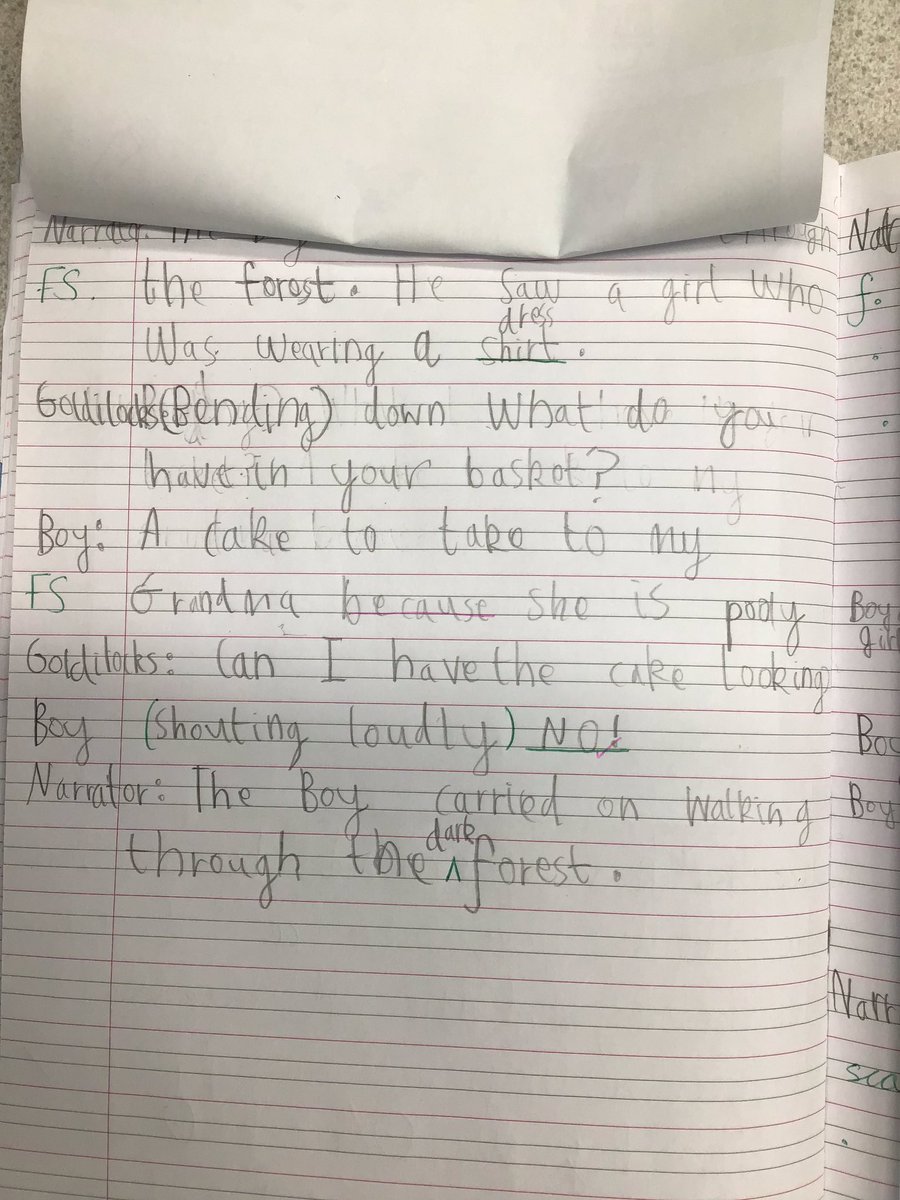 the forest. He saw a girl who
FS.
dress
Was wearing a shirt.
Goldilocks (Bending) down What do you
have in your basket?
Boy: A cake to take to my
FS Grandma because she is pooly
Goldilocks: Can I have the cake looking
Boy (shouting loudly) NO!
Narrator: The Boy carried on walking
dark
through the ^ forest.
Boy
Boy